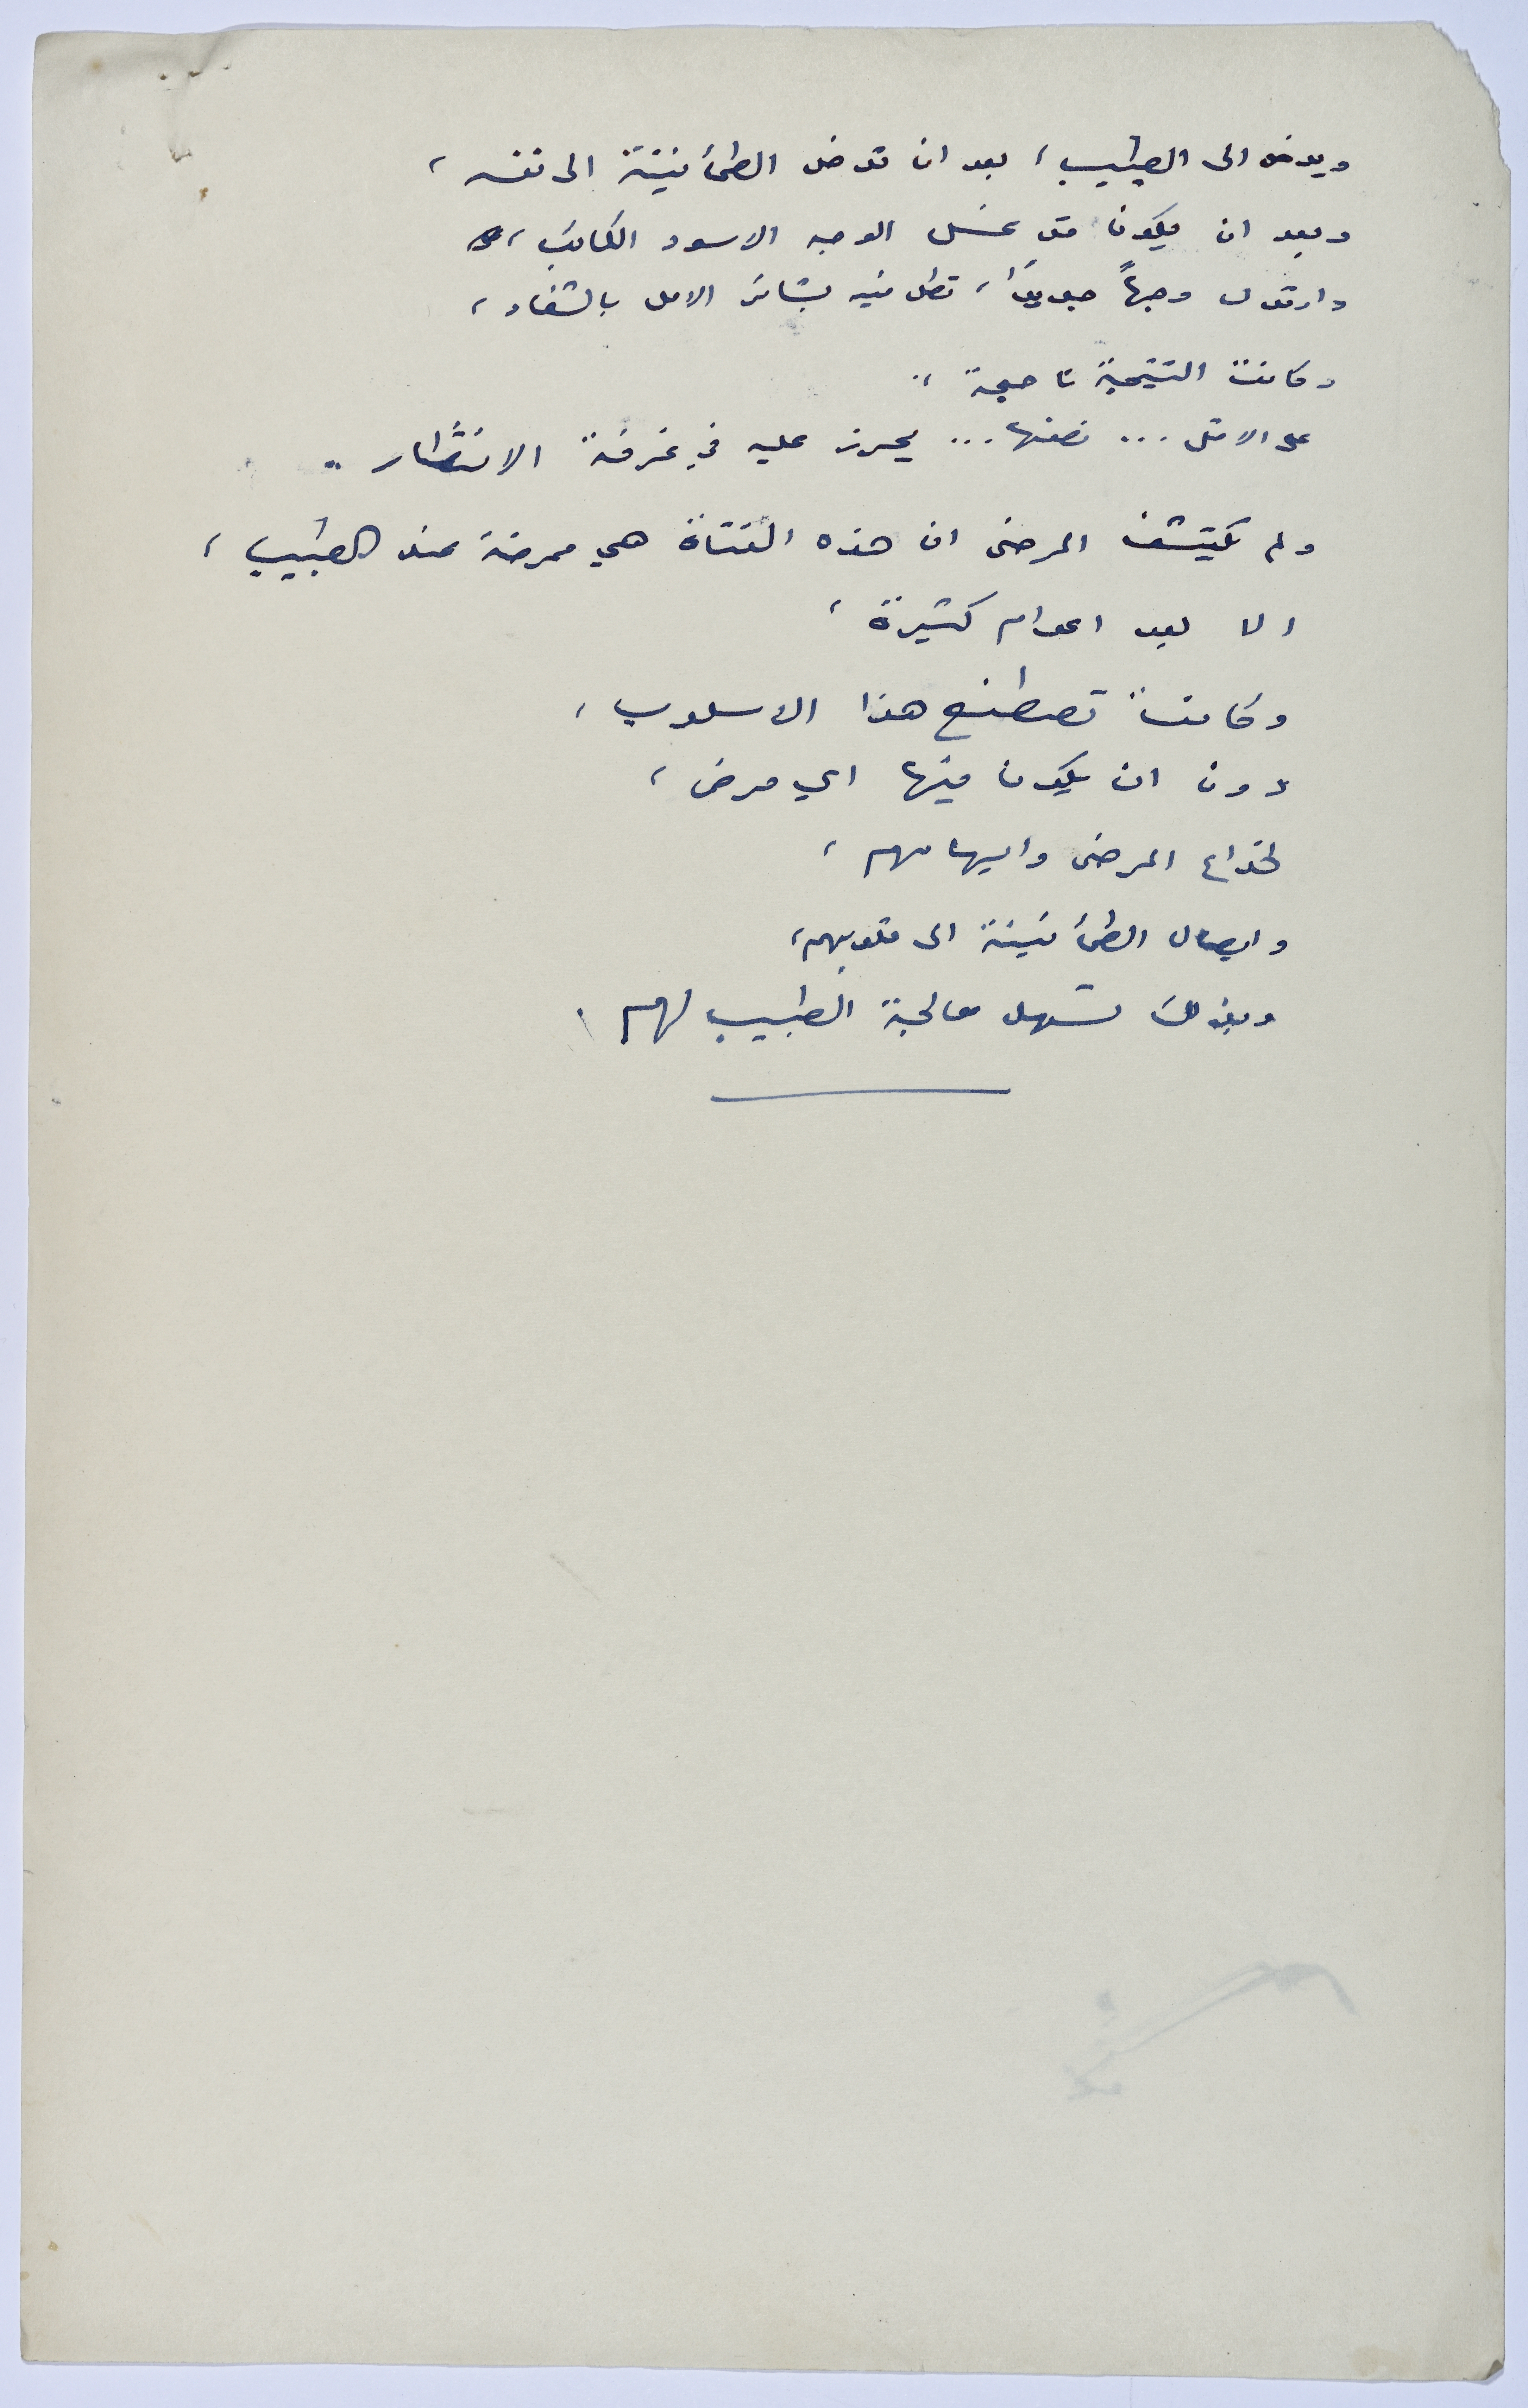 ويدخل الى الطبيب، بعد ان تدخل الطمأنينة الى نفسه،
وبعد ان يكون قد غسل الوجه الاسود الكائب،
وارتدى وجهاً جديداً، تطل منه بشائر الامل بالشفاء،
وكانت النتيجة ناجحة ..
على الاقل ... نصفها ... يحرز عليه في غرفة الانتظار ..
ولم يكتشف المرضى ان هذه الفتاة هي ممرضة عند الطبيب،
الا بعد اعوام كثيرة،
وكانت تصطنع هذا الاسلوب،
دون ان يكون فيها اي مرض،
لخداع المرضى وايهامهم،
وايصال الطمأنينة الى قلوبهم،
وبذلك تسهل معالجة الطبيب لهم.